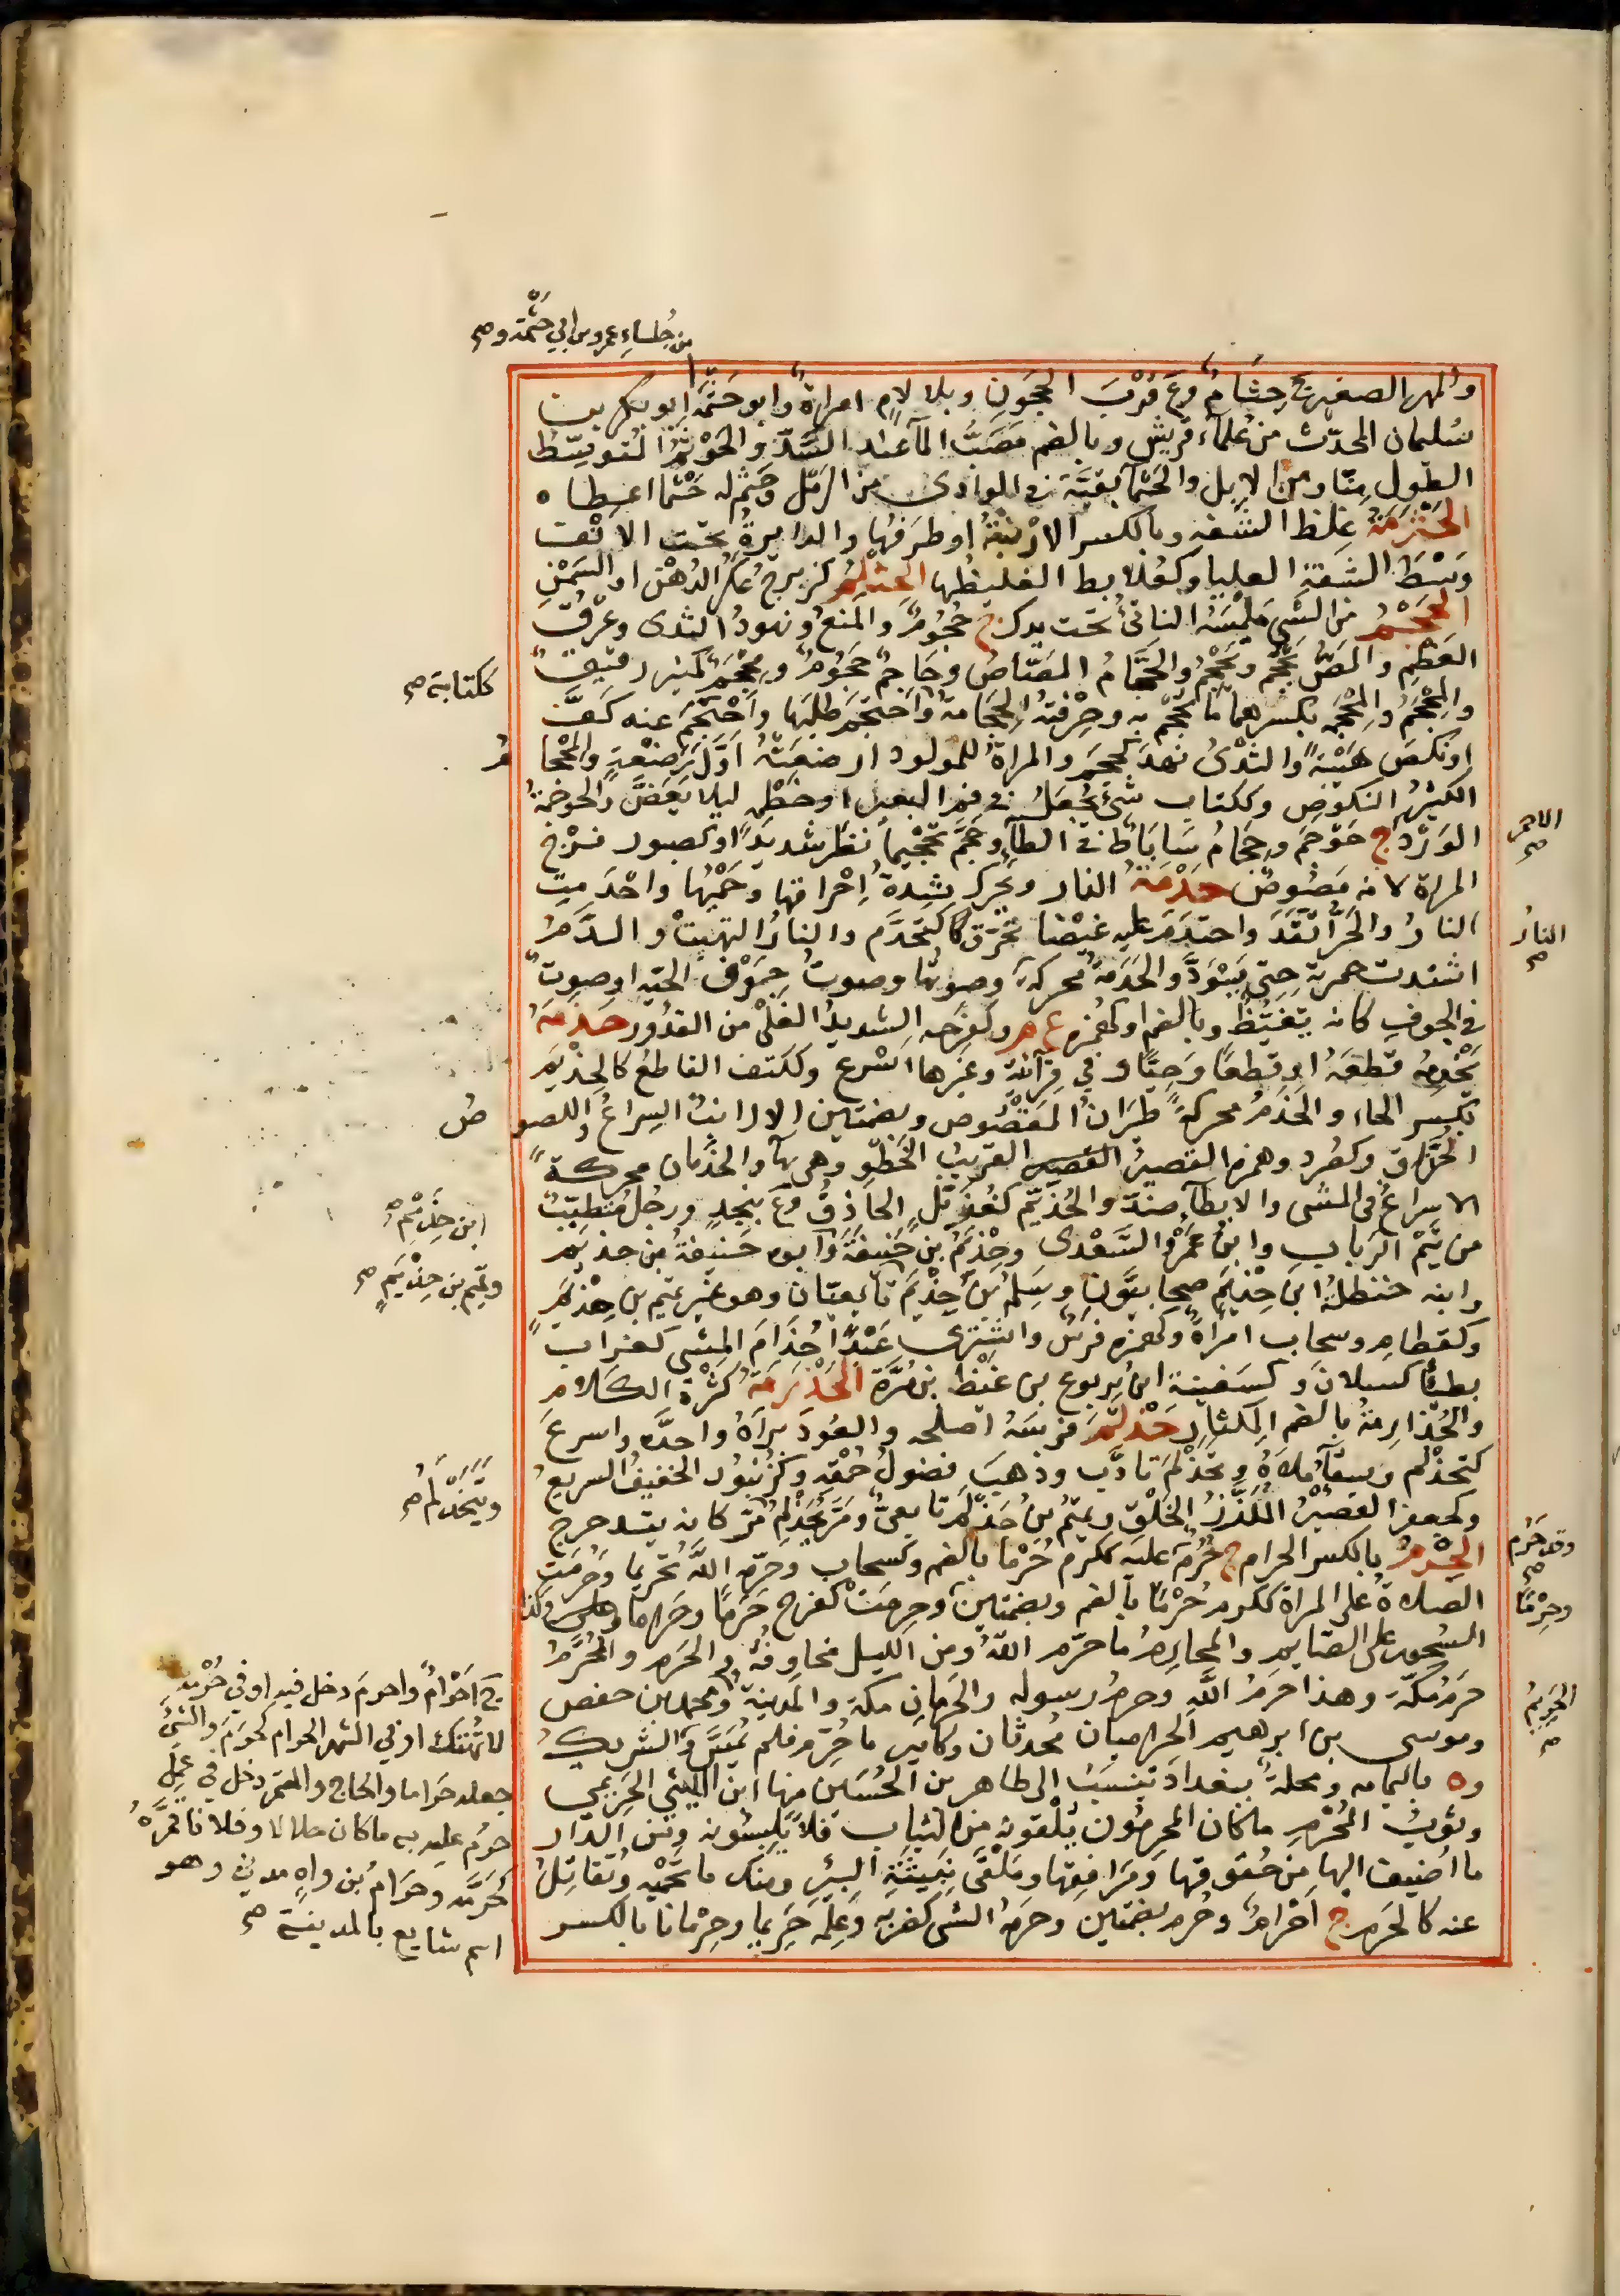 من جُلساءِ عمرو بن ابي حَثْمَة وصح
والمهر الصغير ج حِثَامٌ وع قُرْبَ الحجَونِ وبلا لامٍ امراةٌ وابو حَثْمَة ابو بكر بن
سُليمان المحدّث من علماء قريش وبالضم مَصَبُّ المآ عند السَّدّ والحَوْثَمُ المُتوسِّطُ
الطولِ مِنّا ومن الابل والحَثْما بقيّة في الوادى من الرَمْل وحَثم له حَثْمًا اعطاه
الحَثْرَمَةُ غِلظ الشَفه وبالكسر الارْنبةُ او طرَفُها والدايرةُ تحت الانف
وَسْطَ الشفةِ العليا وكعُلابط الغليظُها الحِثْلِمُ كزبرج عَكَرُ الدُهْن او السَمْنِ
الحَجْمُ من الشى مَلْمَسُه الناتئ تحت يدك ج حُجُومٌ والمنعُ ونهودُ الثدى وعَرْقُ
العَظْمِ والمَصُّ يَحْجُم ويَحْجِمُ والحَجَّامُ المَصّاصُ وحَاجِمٌ حَجُومٌ ومِحْجَمٌ كمنبر رفيقٌ
والمِحْجَمُ والمِحْجَمَة بكسرهما مَا يُحْجَم به وحِرْفتُه الحِجَامةُ واحْتَجَم طلبَها واَحْجَمَ عنه كَفَّ
كلتابة صح
او نكصَ هَيْبةً والثدْىُ نَهدَ كحجمَ والمراةُ للمولود ارضعَتْه اوّلَ رَضْعةٍ والمِحْجامُ
الكثيرُ النكوصِ وككتاب شئ يُجعَلُ في فم البعير او خطْمه ليلا يَعَضَّ والحَوْجَمَةُ
الوَرْد ج حَوْجَم وحَجّامُ سَابَاطَ في الطا وحَجّمَ تحجيمًا نظر شديدًا وكصبور فَرْجُ
الاحمر صح
المراة لانه مَصُوصٌ حَدْمَةُ النار ويُحرّك شِدةُ اِحْراقها وحَمْيُها واحْتَدمت
النارُ والحَرُّ اتّقَدَ واحتدَمَ عليه غيضًا تحرّق كتَحَدَّم والنارُ التهبتْ والدَّمُ
النارُ صح
اشتدت حمرته حتى يَسْوَدَّ والحَدَمةُ محركةً وصوتُها وصوتُ جوْفِ الحَيّه او صوت
في الجوفِ كانه تغيّظ وبالضم او كهُمَزَه ع م وكفَرحه الشديدُ الغَلْىِ من القدُور حَذَمَهُ
يَحْذِمُه قطعَهُ او قطعًا وَحِيًّا وفي قرآتِه وغيرها اسْرع وككتف القاطعُ كالحِذْيَم
بكسر الحاء والحَذَمُ محركةً طيَرانُ المَقْصُوص وبضمتين الارانبُ السِراعُ واللصوصُ
الحُذَّاق وكصُرد وهمزه القصيرُ القريبُ الخَطْو وهى بهآ والحذَمان محركةً
الاسراعُ في المشى والابطآءُ ضدّ والحُذَيْم كهُذَيْل الحاذِقُ وع بنجدٍ ورجُل مُتطبّبٌ
من تَيْم الربابِ وابنُ عَمْرٍو السَعْدى وحِذْيَمُ بن حَنيفَةَ وابوه حَنيفةُ بن حذيم
ابن حِذْيَمٍ صح
وابنه حنظلةُ ابن حِذْيَم صحابيّون وسَلِمُ بن حِذْيَم تابعيّان وهو غير تميم بن حِذْيَم
وتميم بن حِذْيَمٍ صح
وكقطامِ وسحاب امرأةٌ وكهمزه فرسٌ واشترى عَبْدًا حُذَامَ المشى كغراب
بطيئا كسلانَ وكسَفينة ابن يربوع بن غَيْظ بن مُرّةَ الحَذْرَمَةُ كثرة الكلام
والحُذارِمةُ بالضم المِكْثار حَذْلَمَ فرسَه اصلحه والعُودَ براهُ واحدَّه واسرعَ
كتحذْلَم وسقآءَه ملأهُ وتحَذْلَم تادّب وذهبَ فضولُ حُمْقِه وكزُنْبُورٍ الخفيفُ السريعُ
وكجعفر القصيرُ المُلَزَّزُ الخَلْق وتميمُ بن حَذْلم تابعىٌّ ومَرَّ يُحَذْلِمُ مَرّ كانه يتدحرج
ويَتَحَذْلَمُ صح
الحِرْمُ بالكسر الحرام ج حُرُمٌ حرم عليه ككرم حُرْمًا بالضم وكسحاب وحَرّمه اللهُ تحريما وحَرُمَت
وقد حَرُم صح
الصلاةُ على المراة ككرم حُرْمًا بالضم وبضمتين وحرِمَتْ كفرح حَرَمًا وحَراما وكذا
وحِرْمًا
السَحور على الصايم والمحارم ما حرّم اللهُ ومن الليل مخاوفُه والحَرَم والمُحَرَّمُ
حَرَمُ مكّةَ وهذا حَرَمُ اللهِ وحرمُ رسوله والحَرَمانِ مكة والمدينة ومحمد بن حفص
وموسى بن ابرهيم الحرَميان مُحدثان وكامير ما حُرّم فلم يُمَسَّ والشريكُ
الحَرِيمُ صح
وه باليمامه ومحلةٌ ببغدادَ تنسَبُ الى طاهر بن الحُسَين منها ابن الليثى الحَرِيمي
وثوبُ المُحْرِمِ ما كان المحرمُون يُلْقونه من الثياب فلا يَلبسُونه ومن الدَّار
ما اُضيف اليها من حُقوقها ومَرافقها ومَلْقَى نَبيثةِ البئر ومنك ما تَحْميه وتُقاتِلُ
عنه كالحَرَم ج اَحْرامٌ وحُرم بضمتين وحرمه الشى كضربه وعَلِمَه حَرِيما وحِرْمانا بالكسر
ج اَحْرامٌ واحرمَ دخل فيه او في حُرْمةٍ
لا تُهْتَك او في الشهر الحرام كحَرّمَ والشئَ
جعله حَراما والحاج والمعتمر دخل في عملٍ
حَرُم عليه به ما كان حلالا وفلانا قمَرَهُ
كحَرَّمه وحَرامُ بن واهٍ مدنى وهو
اسم شايع بالمدينة صح